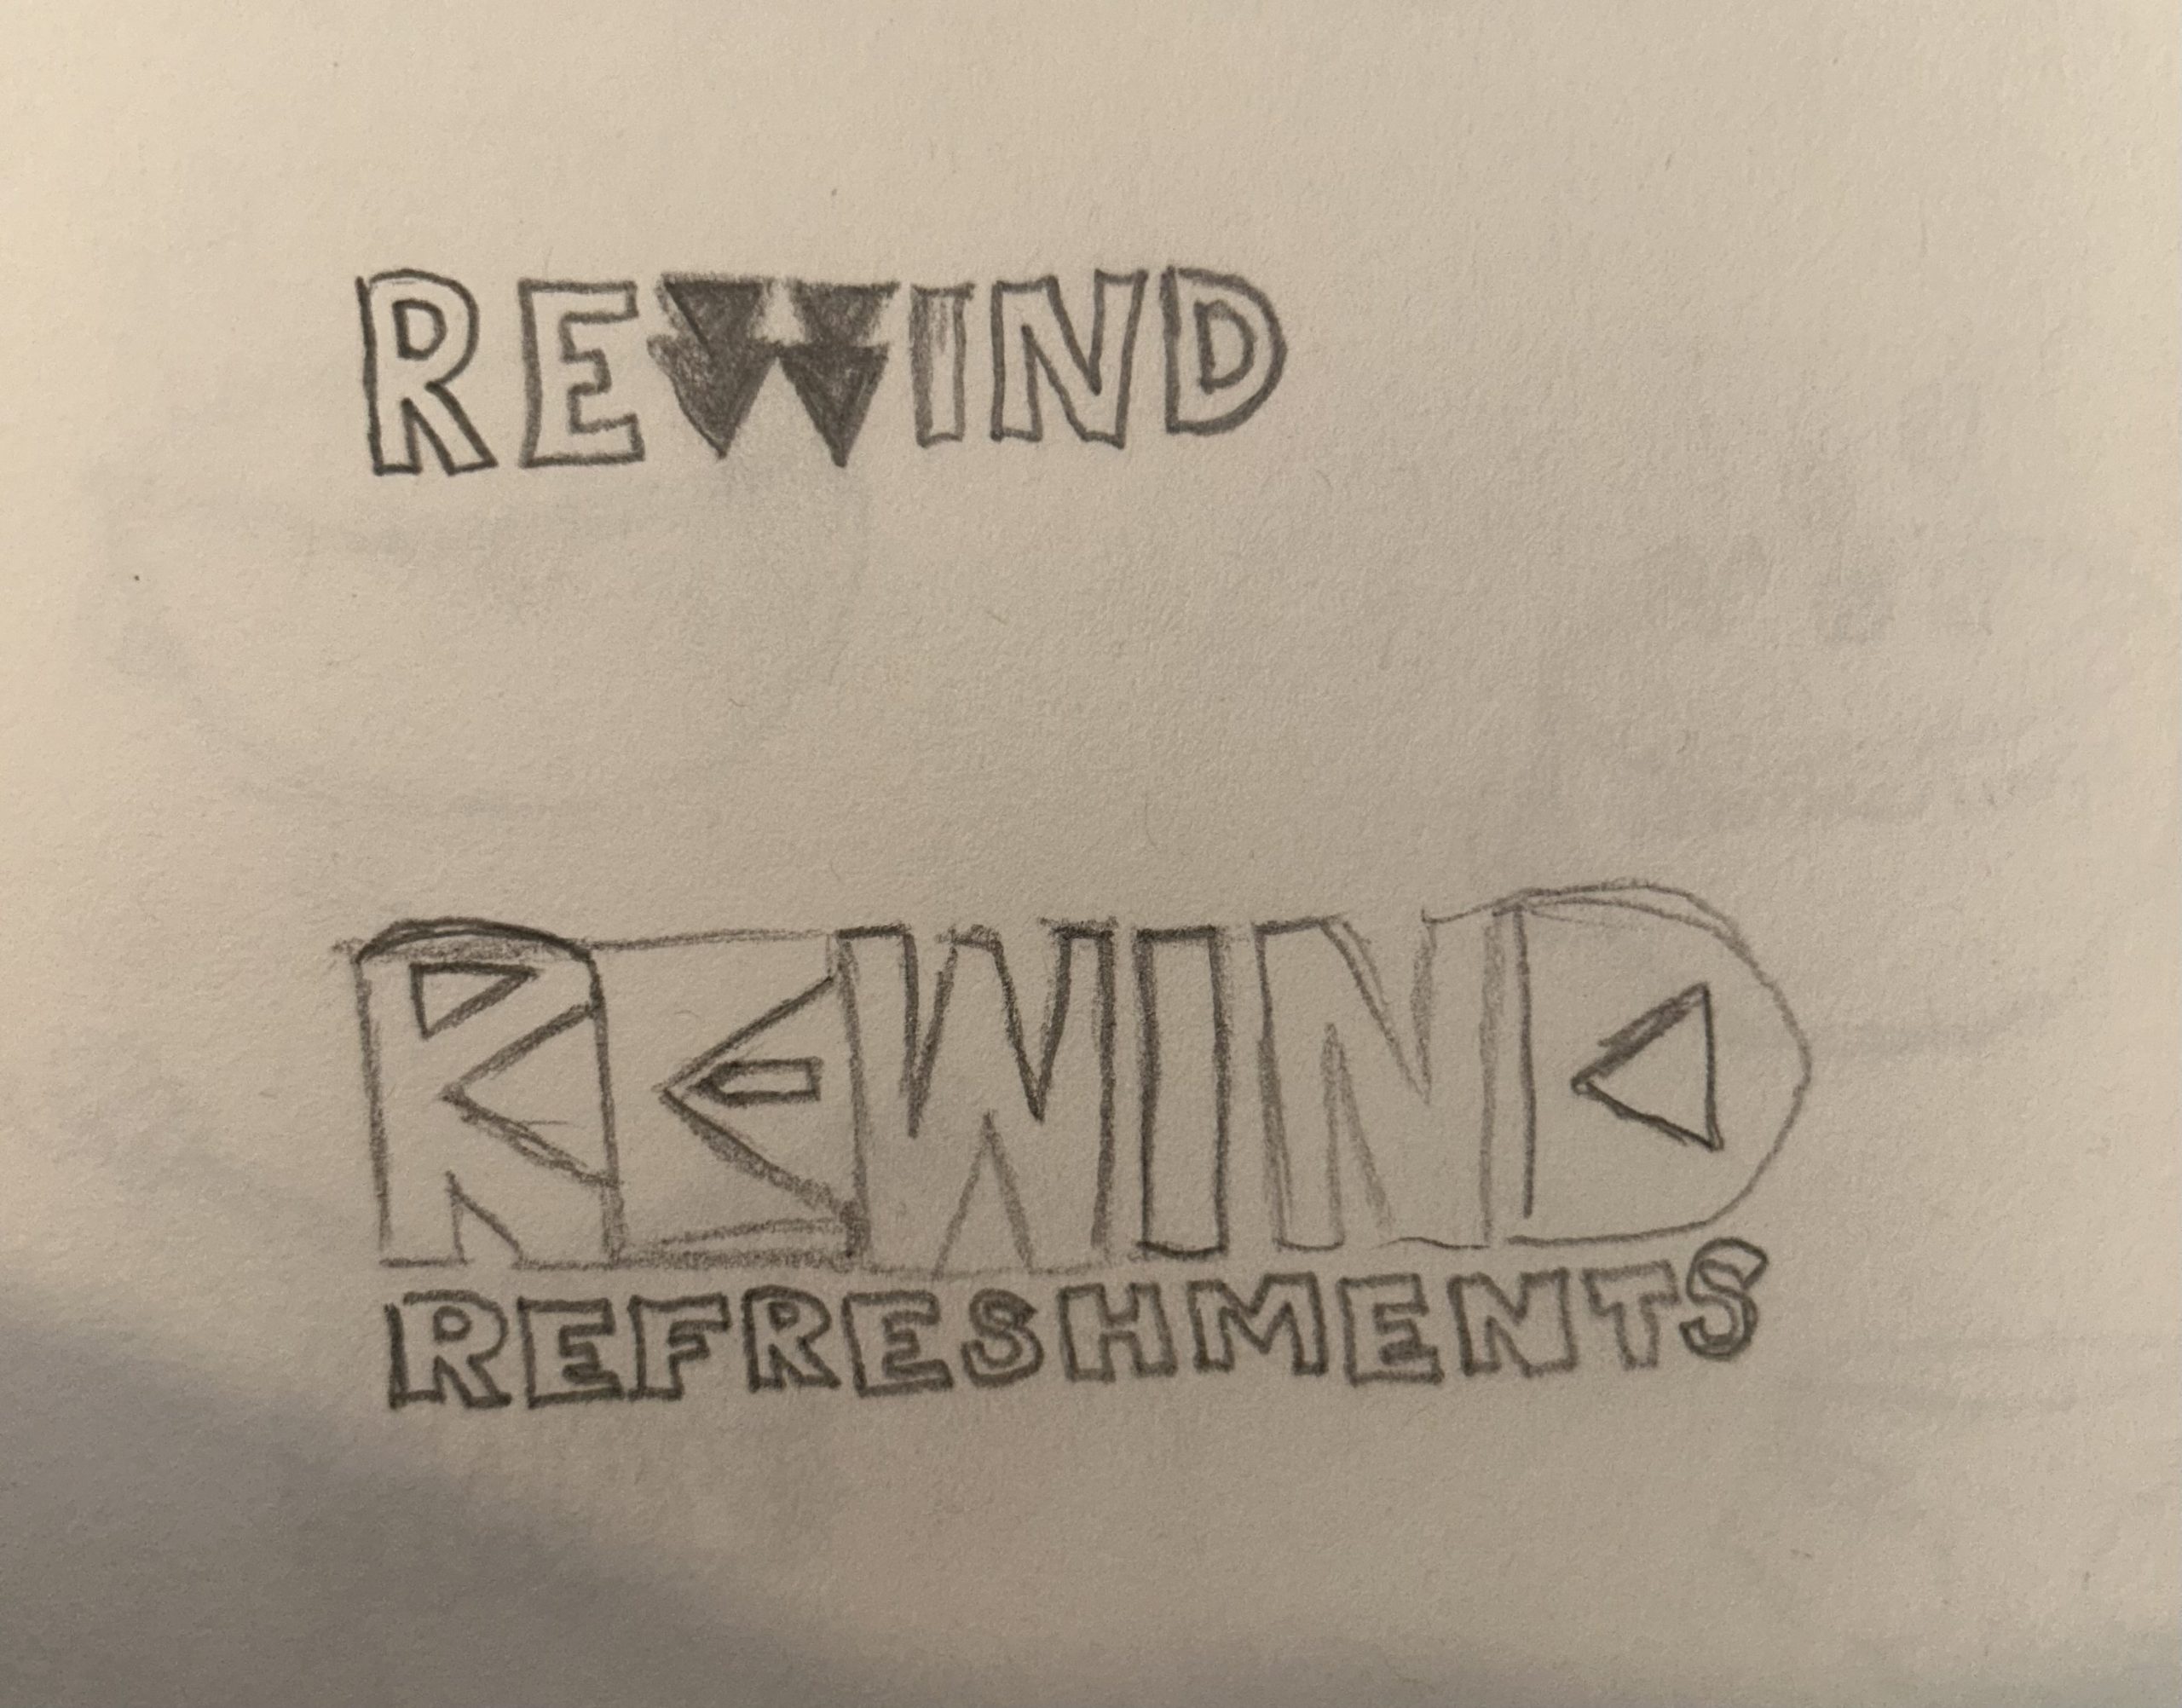 REWIND
REWIND
REFRESHMENTS